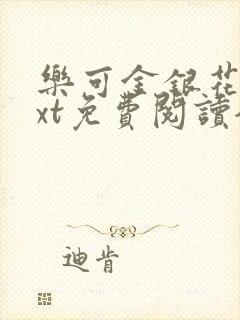 樂可金銀花
xt免費閱讀
迪肯